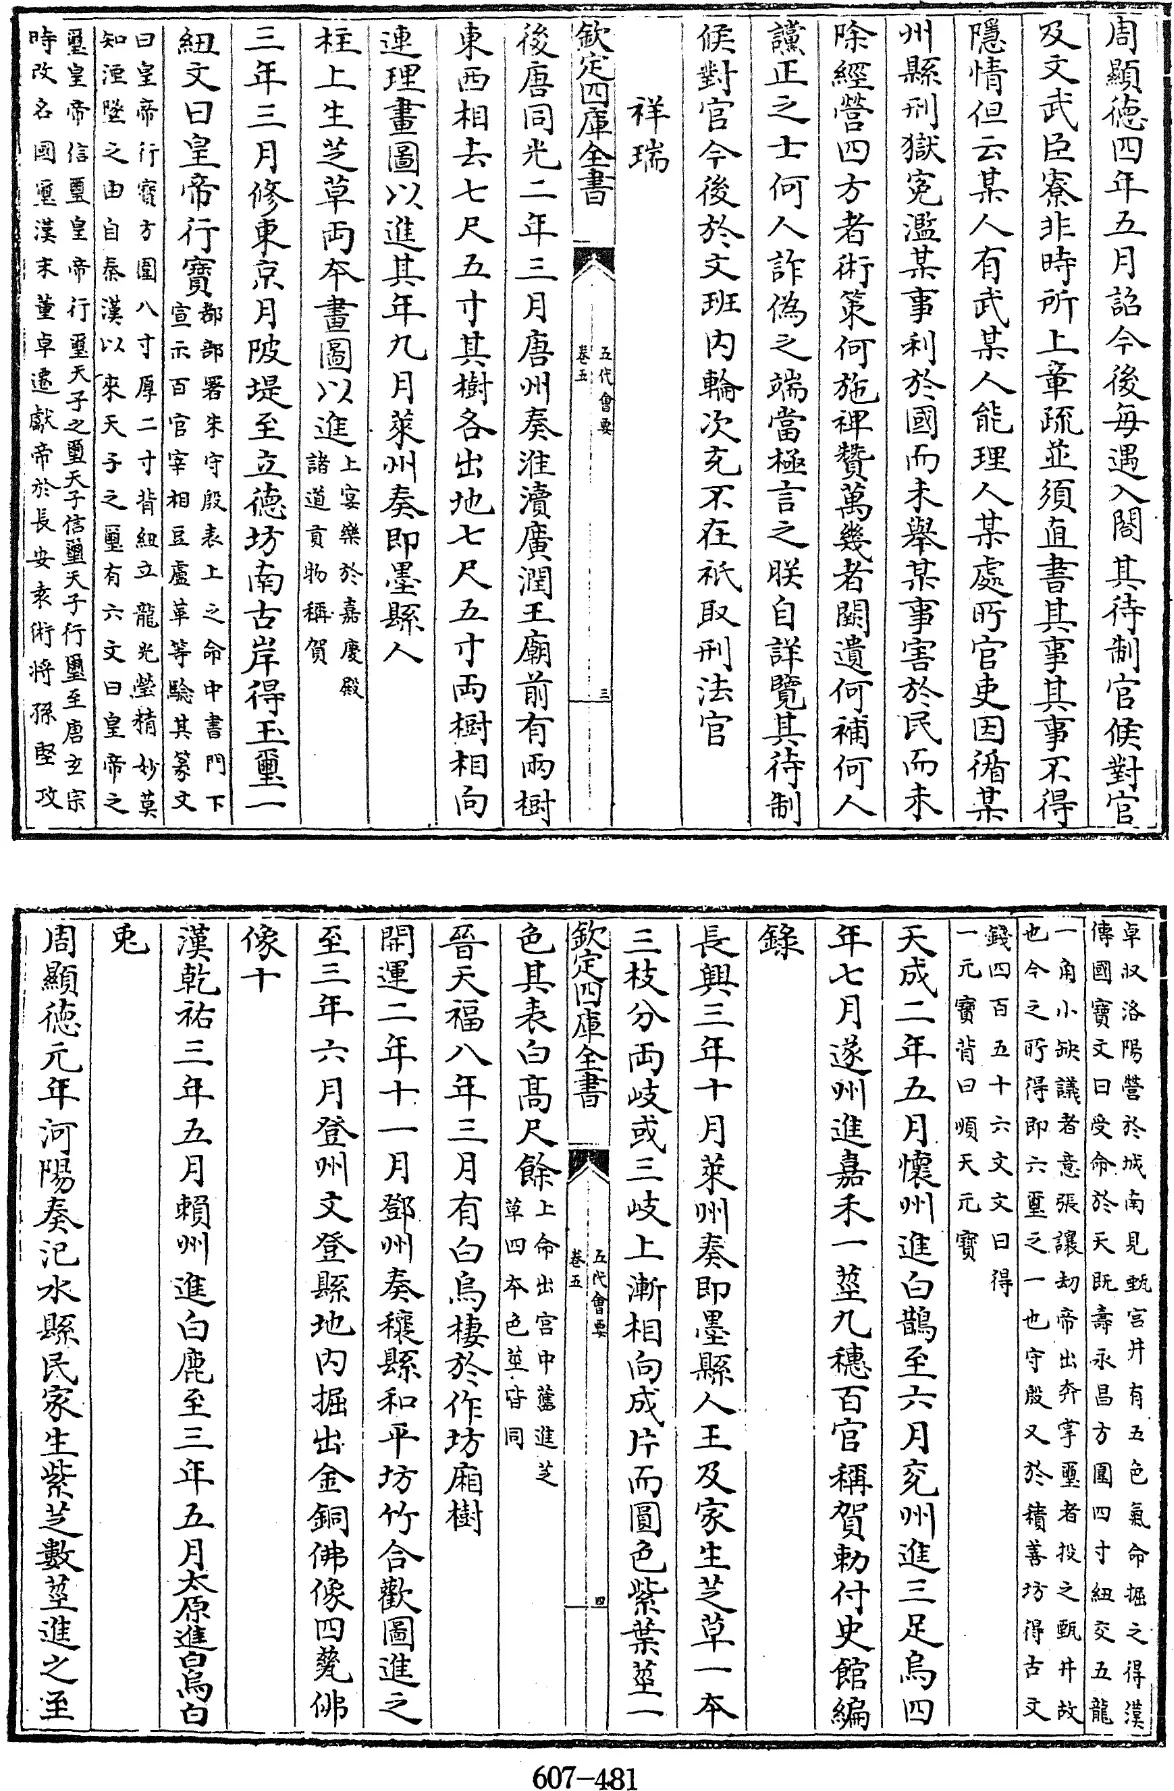 周顯徳四年五月詔今後每遇入閤其待制官候對官
及文武臣寮非時所上章疏並須直書其事其事不得
隱情但云某人有武某人能理人某處所官吏因循某
州縣刑獄寃濫某事利於國而未舉某事害於民而未
除經營四方者術策何施禆贊萬幾者闕遺何補何人
讜正之士何人詐偽之端當極言之朕自詳覽其待制
候對官今後於文班内輪次充不在祇取刑法官
祥瑞
欽定四庫全書
五代會要
卷五
三
後唐同光二年三月唐州奏淮瀆廣潤王廟前有兩樹
東西相去七尺五寸其樹各出地七尺五寸兩樹相向
連理畫圖以進其年九月萊州奏即墨縣人
柱上生芝草兩本畫圖以進
上宴樂於嘉慶殿
諸道貢物稱賀
三年三月修東京月陂堤至立德坊南古岸得玉璽一
紐文曰皇帝行寳
都部署朱守殷表上之命中書門下
宣示百官宰相豆盧革等驗其篆文
曰皇帝行寳方圍八寸厚二寸背紐立龍光瑩精妙莫
知湮墜之由自秦漢以來天子之璽有六文曰皇帝之
璽皇帝信璽皇帝行璽天子之璽天子信璽天子行璽至唐玄宗
時改名國寳漢末董卓遷獻帝於長安袁術將孫堅攻
卓收洛陽營於城南見甄宮井有五色氣命掘之得漢
傳國寳文曰受命於天既壽永昌方圍四寸紐交五龍
一角小缺議者意張讓劫帝出奔掌璽者投之甄井故
也今之所得即六璽之一也守殷又於積善坊得古文
錢四百五十六文文曰得
一元寳背曰順天元寳
天成二年五月懷州進白鵲至六月兖州進三足烏四
年七月遂州進嘉禾一莖九穗百官稱賀勅付史館編
錄
長興三年十月萊州奏即墨縣人王及家生芝草一本
三枝分兩岐或三岐上漸相向成片而圓色紫葉莖一
欽定四庫全書
五代會要
卷五
四
色其表白高尺餘
上命出宫中舊進芝
草四本色莖皆同
晉天福八年三月有白烏棲於作坊廂樹
開運二年十一月鄧州奏穰縣和平坊竹合歡圖進之
至三年六月登州文登縣地内掘出金銅佛像四甆佛
像十
漢乾祐三年五月頼州進白鹿至三年五月太原進白烏白
兎
周顯徳元年河陽奏汜水縣民家生紫芝數莖進之至
607-481